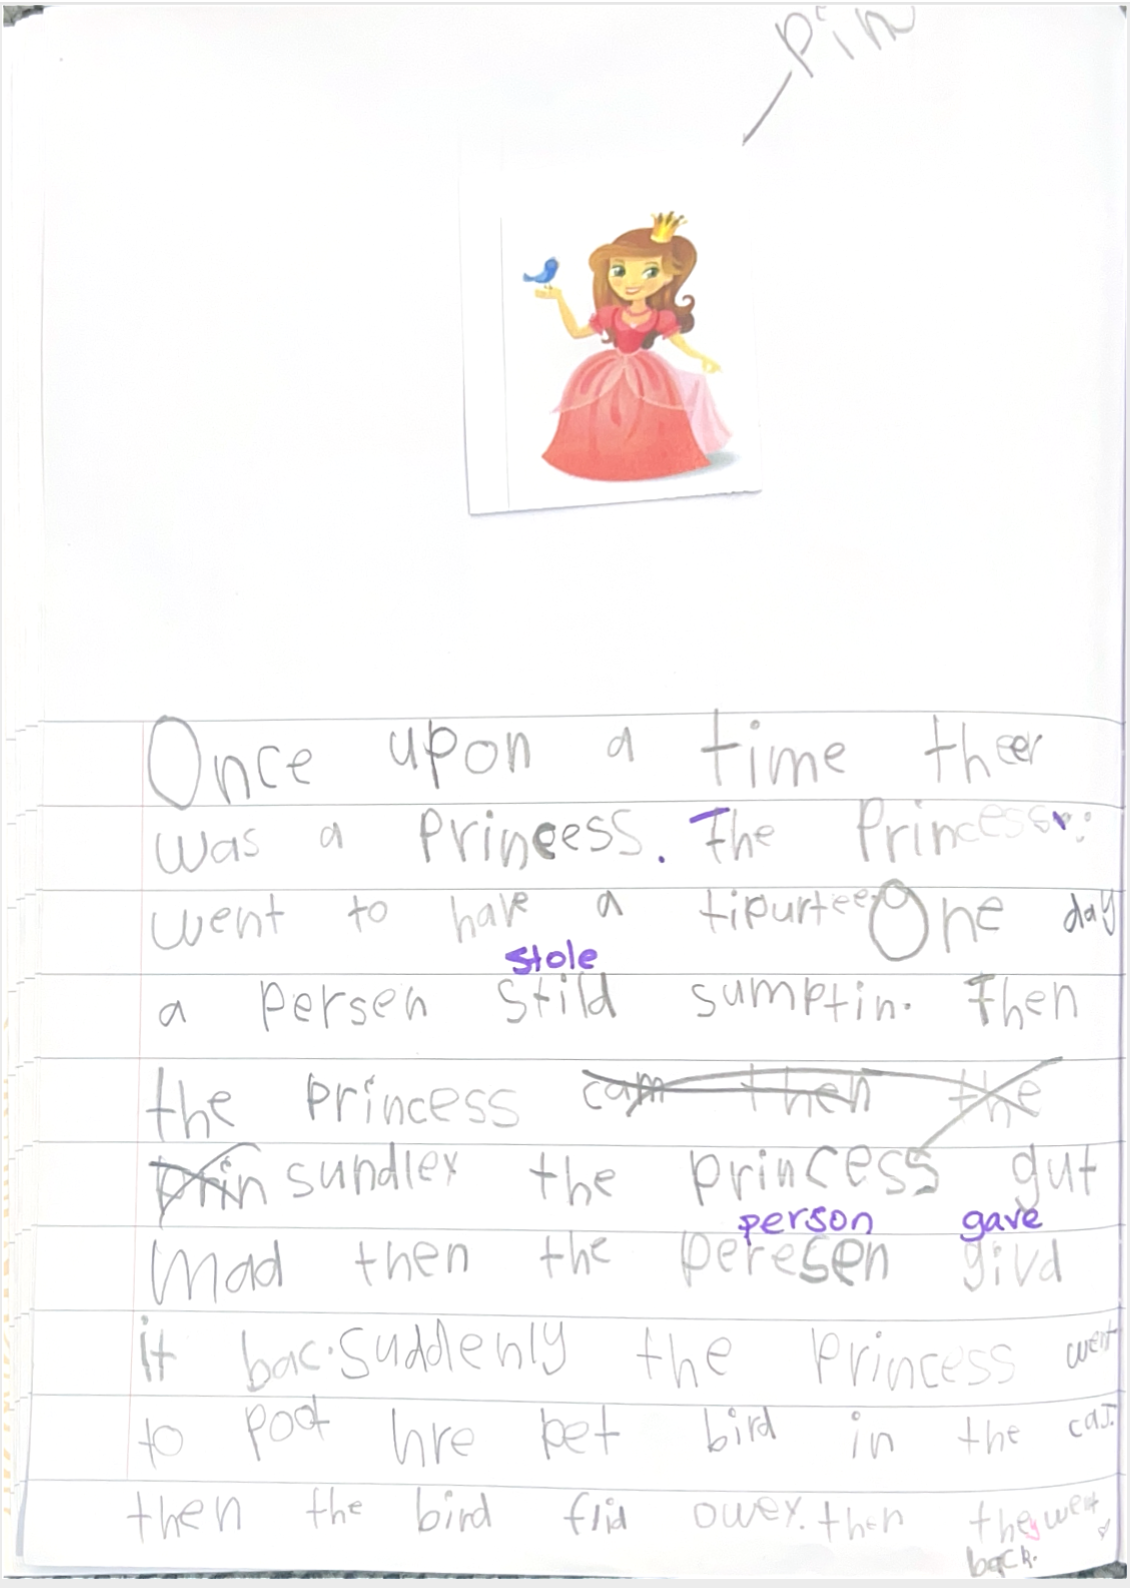 pin
Once upon a time theer
was a Princess. The Princess
went to have a tipurtee One day
stole
a persen stild sumptin. Then
the princess cam then the
prin sundley the princess gut
person gave
Mad then the peresen givd
it bac. Suddenly the Princess went
to poot hre pet bird in the caj.
then the bird flid owey. then they went
back.